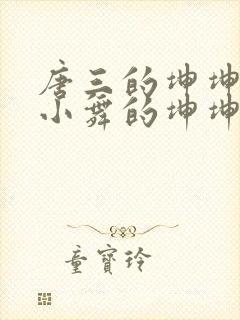 唐三的坤坤
小舞的坤坤
童寶玲